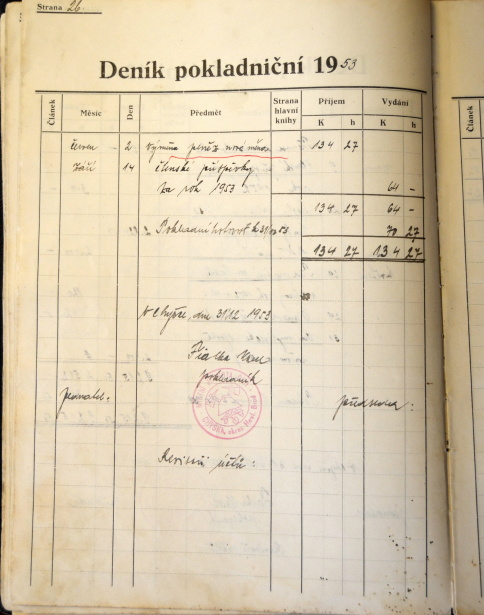 Strana 26.
Deník pokladniční 1953
Článek
Měsíc
Den
Předmět
Strana hlavní knihy
Příjem
Vydání
K h K h
Článek
červen - 2 výměna peněz nová měna 134 27
září 14 členské příspěvky
za rok 1953 64 -
134 27 64 -
Pokladní hotovost k 31/12 53 70 27
134 27 134 27
V Chýšce, dne 31/12 1953
Fialka
pokladník
Jednatel: předseda:
Revisoři účtů: